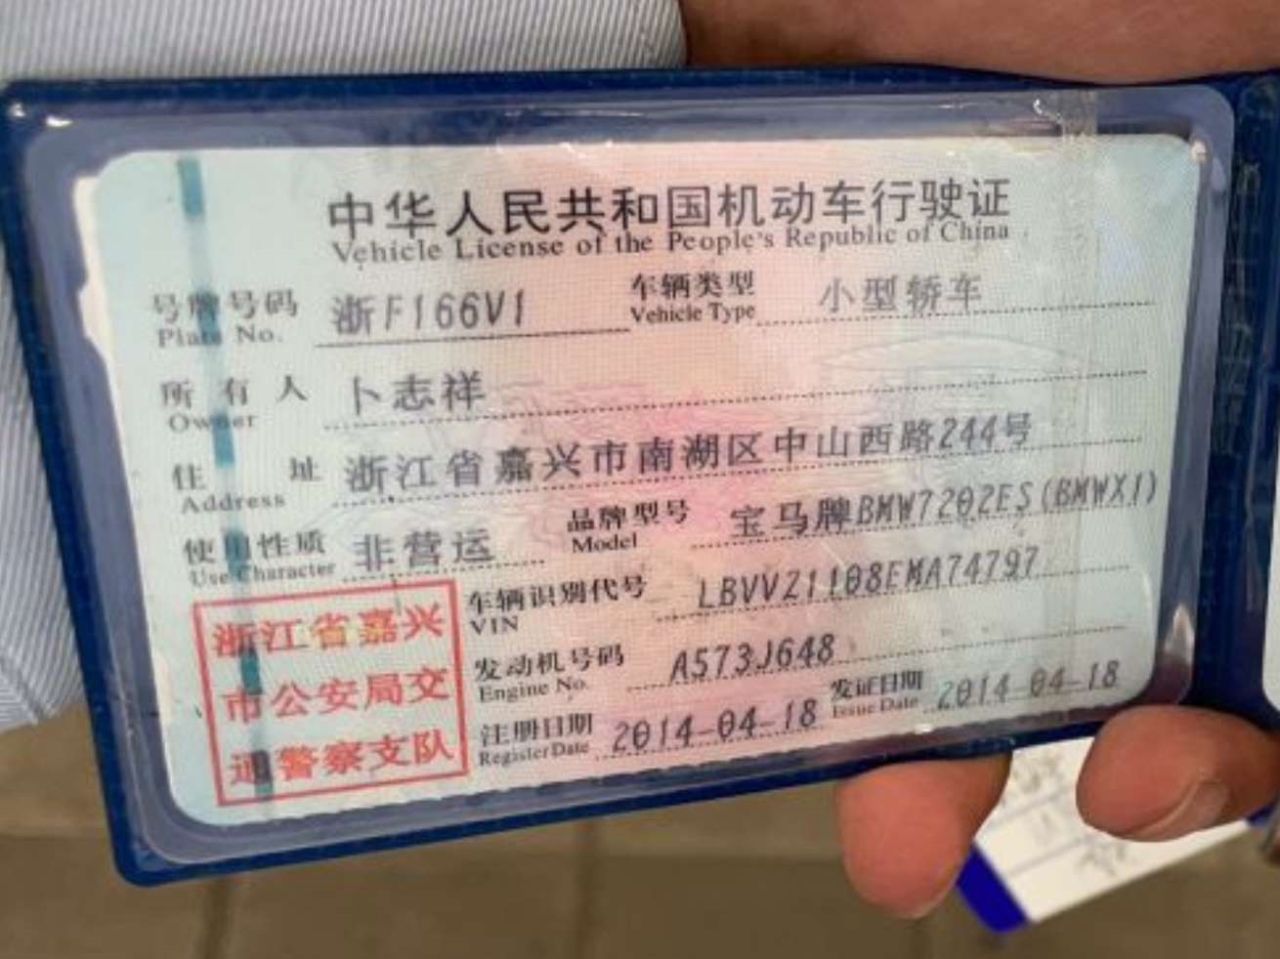 中华人民共和国机动车行驶证
Vehicle License of the People's Republic of China
号牌号码 浙F166V1 车辆类型 小型轿车
Plate No. Vehicle Type
所有人 卜志祥
Owner
住址 浙江省嘉兴市南湖区中山西路244号
Address
使用性质 非营运 品牌型号 宝马牌BMW7202ES(BMWX1)
Use Character Model
车辆识别代号 LBVVZ1108EMA74797
VIN
发动机号码 A573J648
Engine No.
注册日期 2014-04-18 发证日期 2014-04-18
Register Date Issue Date
浙江省嘉兴
市公安局交
通警察支队